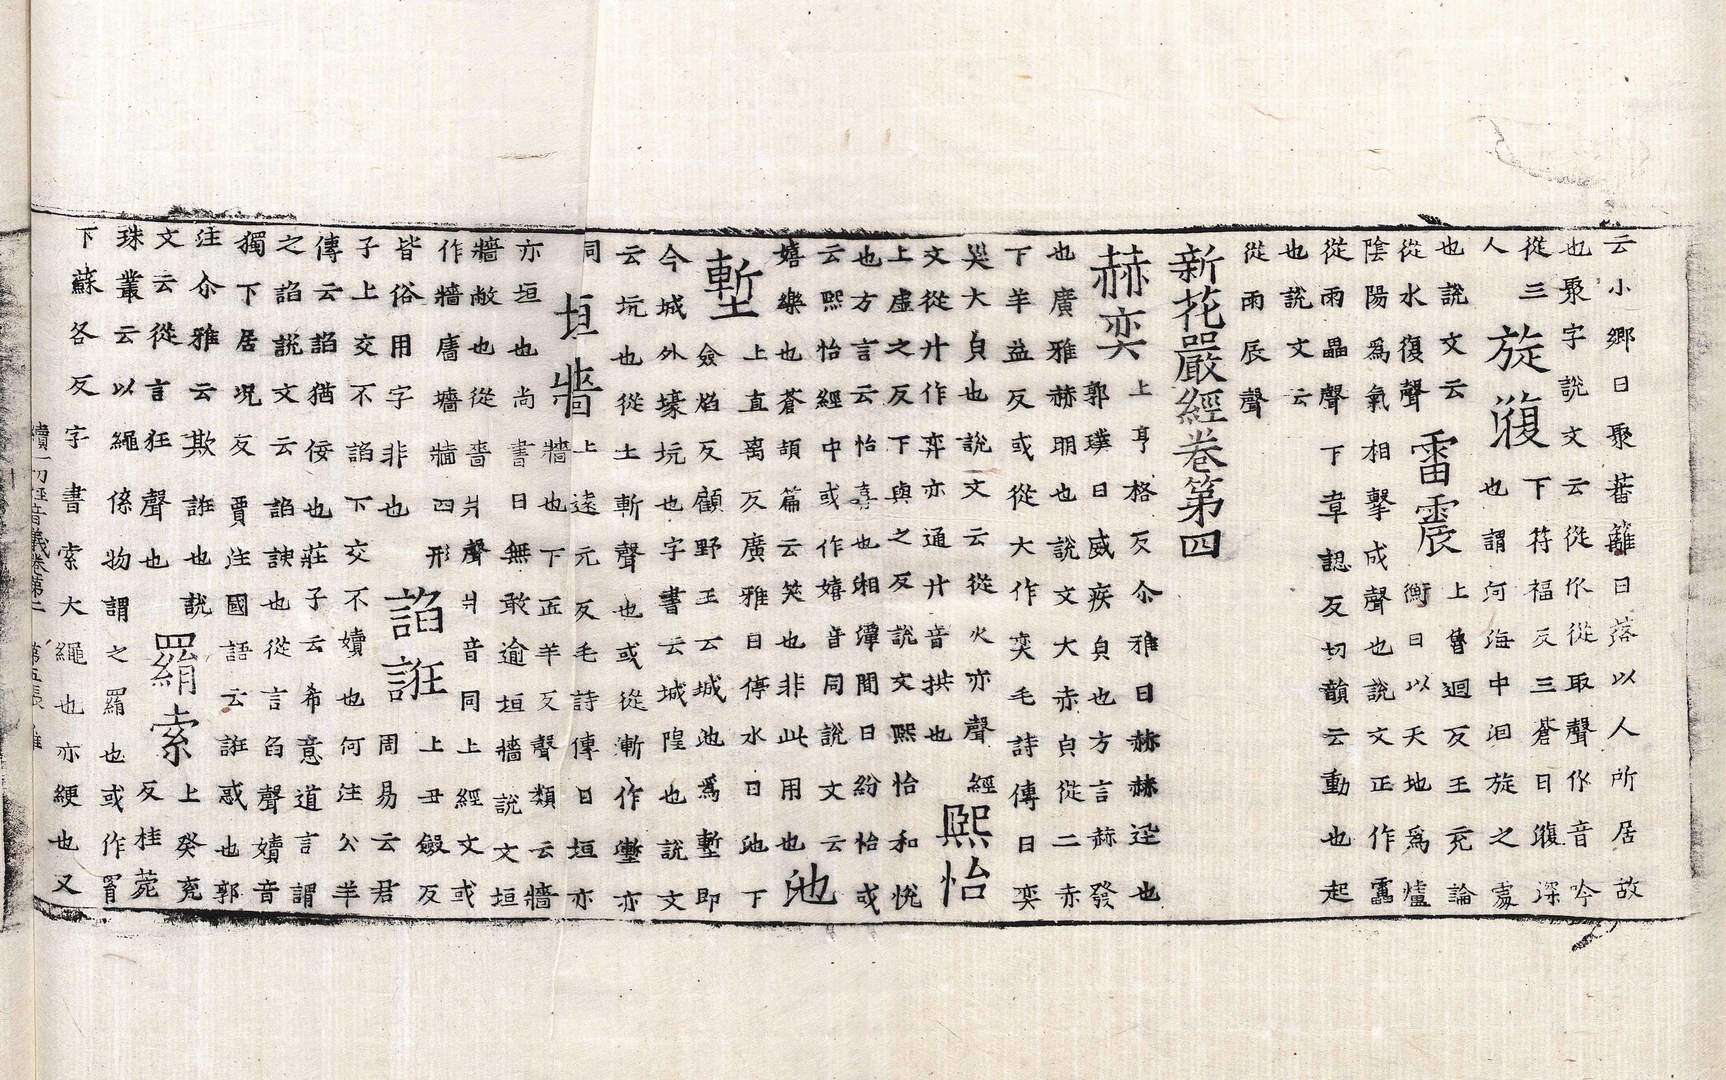 云小鄉曰聚蕃籬曰落以人所居故
也聚字說文云從㐺從取聲作音吟
從三
人
旋澓
下符福反三蒼曰澓深
也謂河海中洄旋之處
也說文云
從水復聲
雷震
上魯迴反王充論
衡曰以天地為爐
陰陽為氣相擊成聲也說文正作靁
從雨畾聲下章認反切韻云動也起
也說文云
從雨辰聲
新花嚴經卷第四
赫奕
上亨格反尒雅曰赫赫迅也
郭璞曰威疾皃也方言赫發
也廣雅赫明也說文大赤皃從二赤
下羊益反或從大作奕毛詩傳曰奕
奕大皃也說文云從火亦聲經
文從廾作弈亦通廾音拱也
熙怡
上虛之反下與之反說文熙怡和悅
也方言云怡喜也湘潭間曰紛怡或
云熙怡經中或作嬉音同說文云
嬉樂也蒼頡篇云笑也非此用也
池
塹
上直离反廣雅曰停水曰池下
僉焰反顧野王云城池為塹即
今城外壕坑也字書云城隍也說文
云坑也從土斬聲也或從漸作壍亦
同
垣牆
上遠元反毛詩傳曰垣亦
牆也下匠羊反聲類云牆
亦垣也尚書曰無敢逾垣牆說文垣
牆敝也從嗇爿聲爿音同上經文或
作牆廧墻牆四形
皆俗用字非也
諂誑
上丑斂反
周易云君
子上交不諂下交不瀆也何注公羊
傳云諂猶佞也莊子云希意道言謂
之諂說文云諂諛也從言臽聲瀆音
獨下居況反賈注國語云誑惑也郭
注尒雅云欺誑也說
文云從言狂聲也
罥索
上癸兖
反桂菀
珠叢云以繩係物謂之罥也或作羂
下蘇各反字書索大繩也亦緶也又
續一切經音義卷第二 第五張